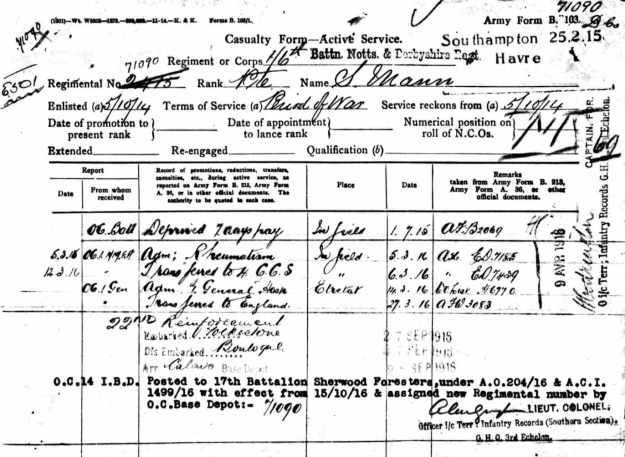 71090
Army Form B. 103.
Casualty Form—Active Service.
Southampton 25.2.15
Havre
71090
Regiment or Corps 1/6th Battn. Notts. & Derbyshire Regt.
5301
71090
Regimental No. 2415 Rank Pte Name S. Mann
Enlisted (a) 5/10/14 Terms of Service (a) Period of War Service reckons from (a) 5/10/14
Date of promotion to present rank
Date of appointment to lance rank
Numerical position on roll of N.C.Os.
Extended Re-engaged Qualification (b)
Report
Date From whom received
Record of promotions, reductions, transfers, casualties, etc., during active service, as reported on Army Form B. 213, Army Form A. 36, or in other official documents. The authority to be quoted in each case.
Place
Date
Remarks
taken from Army Form B. 213, Army Form A. 36, or other official documents.
O.C. Batt Deprived 7 days pay In field 1.7.15 AF B2069
5.3.16 Adm; Rheumatism In field 5.3.16
12.3.16 " Transferred to 4 C.C.S " 6.3.16 "
O.C. 1 Gen Adm 1 General Hosp Etretat 14.3.16
" Transferred to England. 27.3.16 AFW 3083
22ND Reinforcement
Embarked Folkestone 27 SEP 1916
Dis Embarked Boulogne SEP 1916
Arr Calais Base Depot SEP 1916
O.C. 14 I.B.D. Posted to 17th Battalion Sherwood Foresters, under A.O.204/16 & A.C.I.
1499/16 with effect from 15/10/16 & assigned new Regimental number by
O.C. Base Depot:- 71090
LIEUT. COLONEL;
Officer i/c Terr; Infantry Records (Southern Section),
G.H.Q. 3rd Echelon.
9 APR 1916
CAPTAIN, FOR
O i/c Terr; Infantry Records G.H.Q. 3rd Echelon.